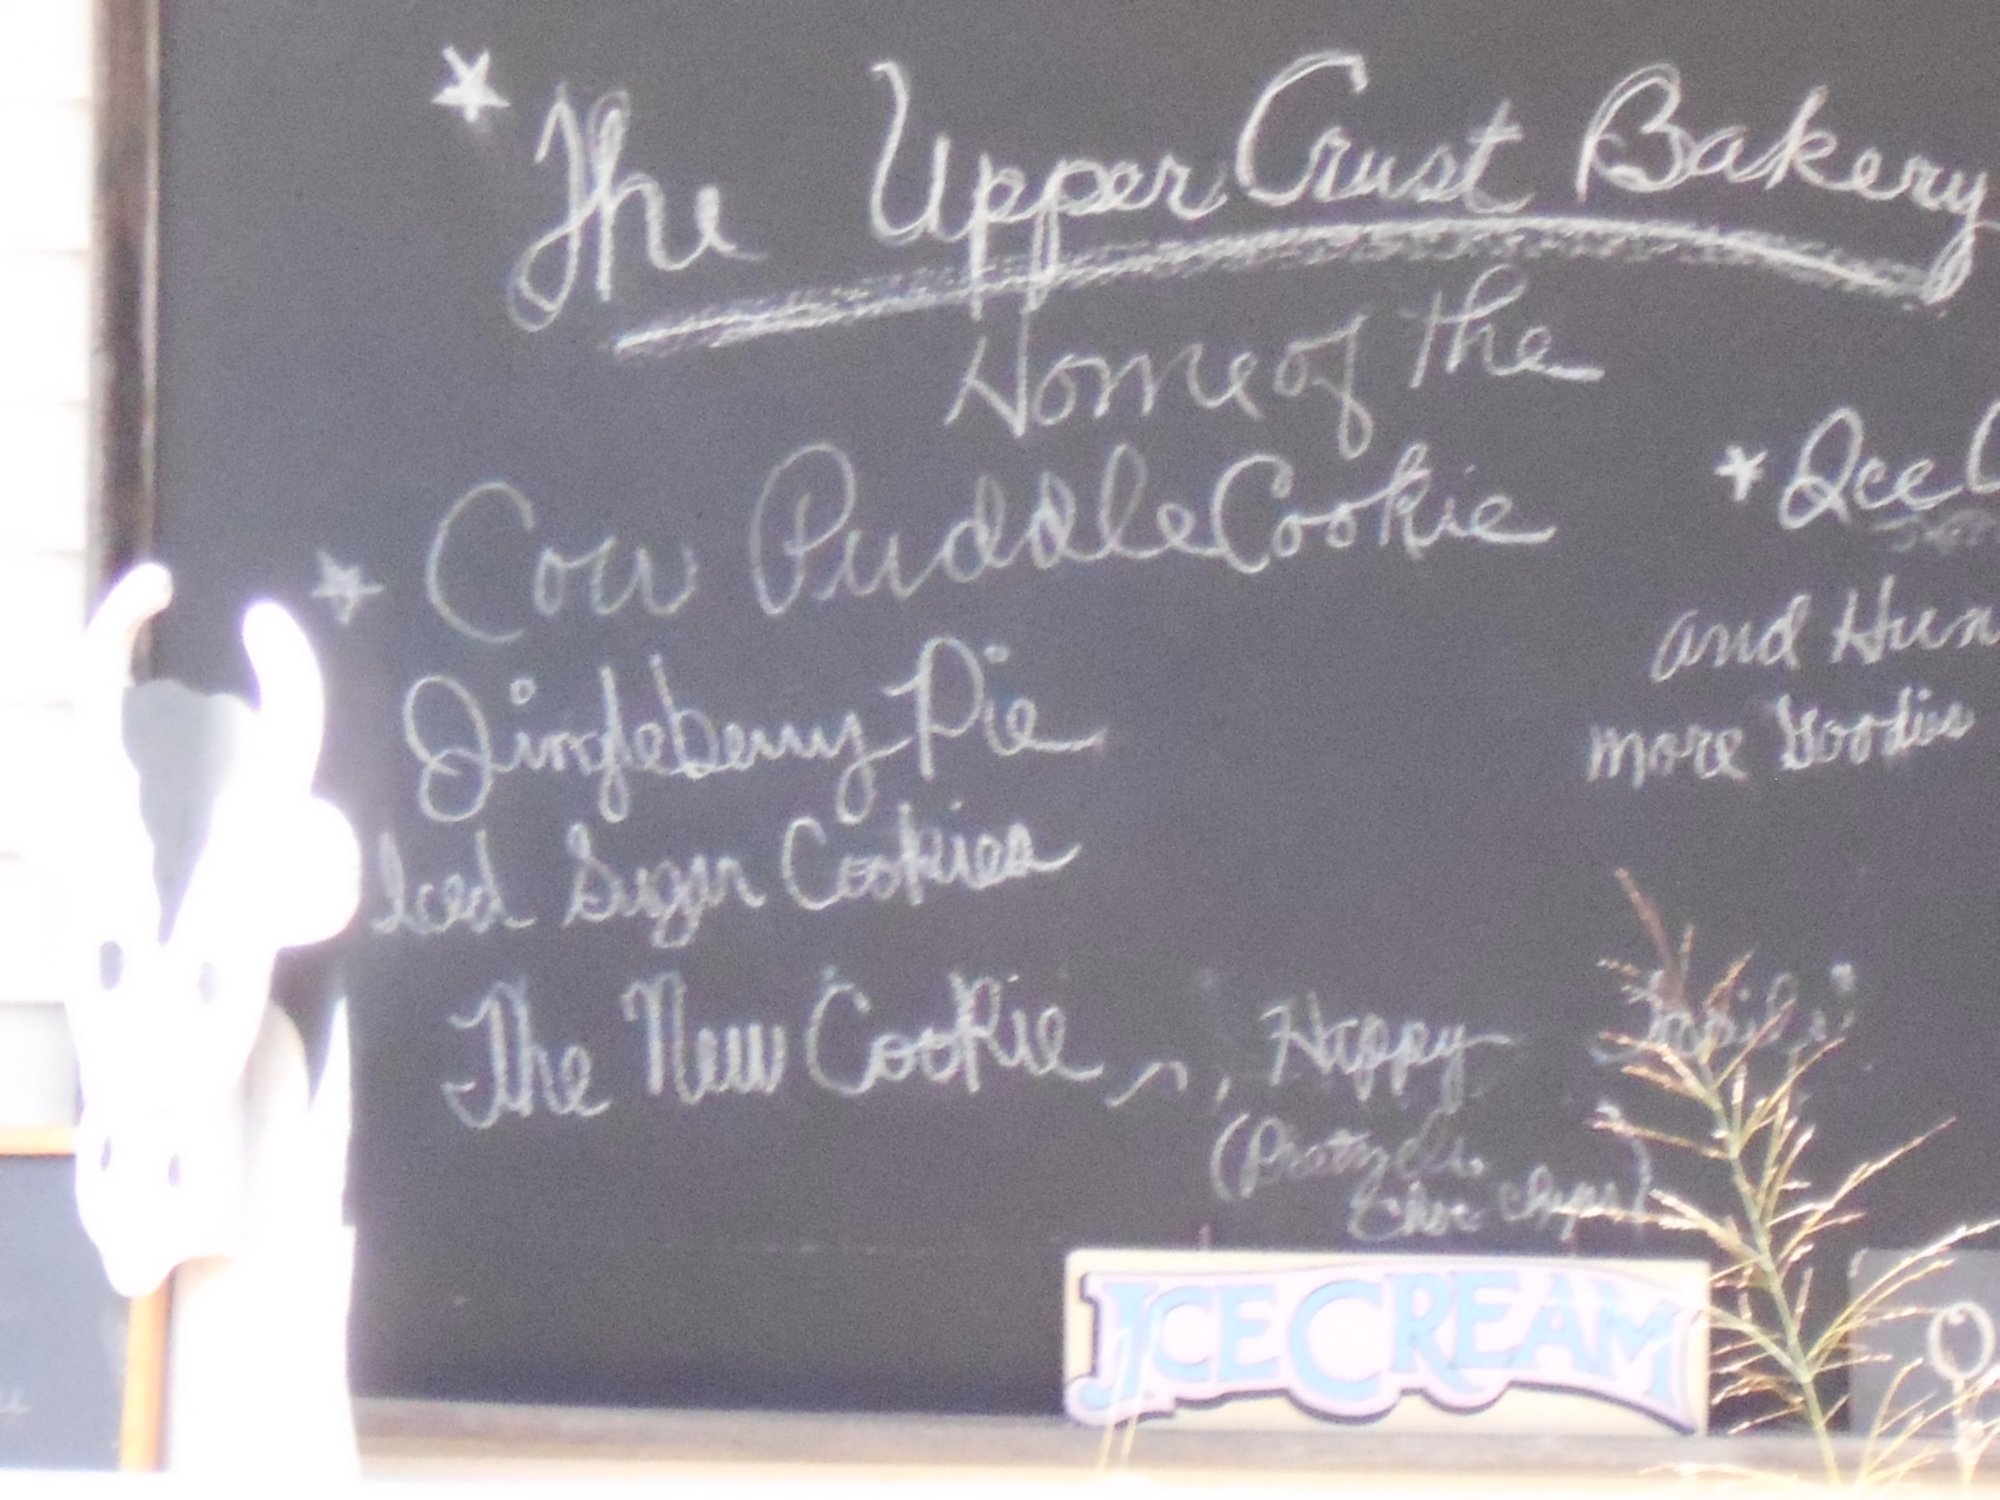 The Upper Crust Bakery
Home of the
Cow Puddle Cookie
Jingleberry Pie
Iced Sugar Cookies
The New Cookie Happy
(Pretzels
Choc Chips)
Ice C
and Hun
more Goodies
ICE CREAM